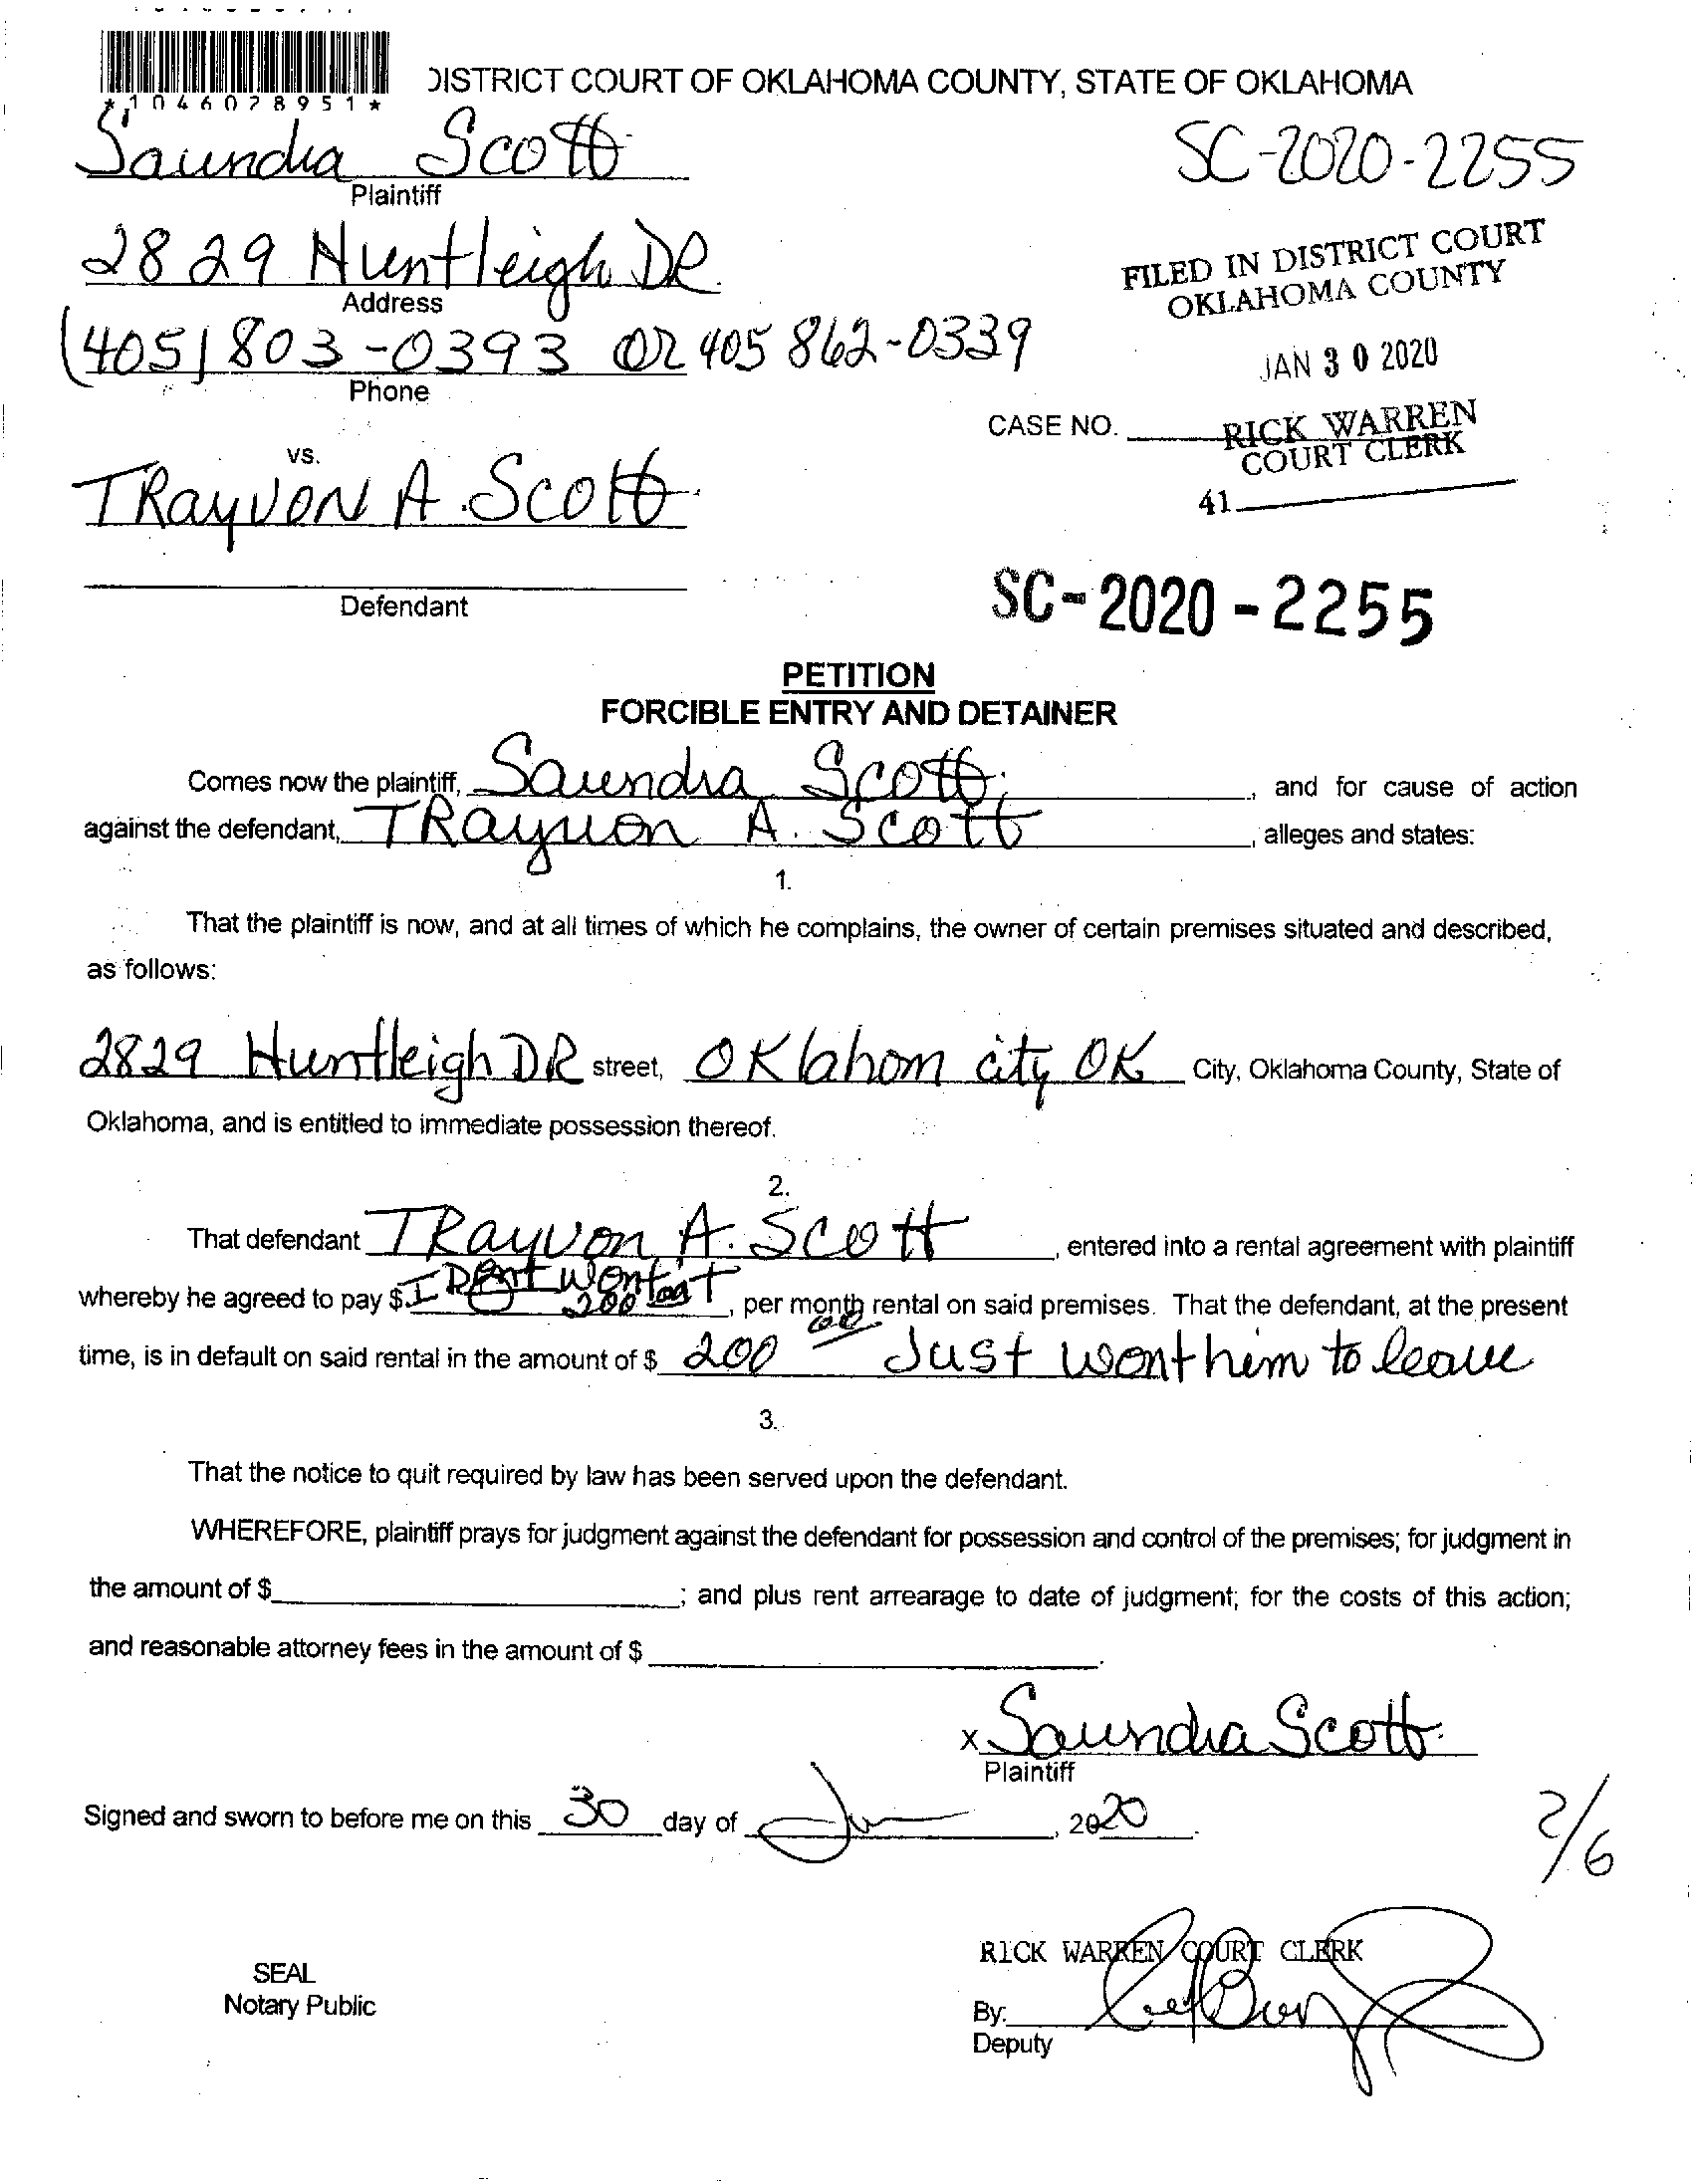 *1046028951*
DISTRICT COURT OF OKLAHOMA COUNTY, STATE OF OKLAHOMA
Saundra Scott
Plaintiff
SC-2020-2255
2829 Huntleigh DR.
Address
FILED IN DISTRICT COURT
OKLAHOMA COUNTY
(405) 803-0393 OR 405 862-0339
Phone
JAN 30 2020
CASE NO.
RICK WARREN
COURT CLERK
vs.
41
TRayvon A. Scott
Defendant
SC-2020-2255
PETITION
FORCIBLE ENTRY AND DETAINER
Comes now the plaintiff, Saundra Scott, and for cause of action
against the defendant, TRayvon A. Scott, alleges and states:
1.
That the plaintiff is now, and at all times of which he complains, the owner of certain premises situated and described,
as follows:
2829 Huntleigh DR street, OKlahom city OK City, Oklahoma County, State of
Oklahoma, and is entitled to immediate possession thereof.
2.
That defendant TRayvon A. Scott, entered into a rental agreement with plaintiff
whereby he agreed to pay $ I wont 200, per month rental on said premises. That the defendant, at the present
time, is in default on said rental in the amount of $ 200 00 Just wont him to leave
3.
That the notice to quit required by law has been served upon the defendant.
WHEREFORE, plaintiff prays for judgment against the defendant for possession and control of the premises; for judgment in
the amount of $ ; and plus rent arrearage to date of judgment; for the costs of this action;
and reasonable attorney fees in the amount of $ .
X Saundra Scott
Plaintiff
Signed and sworn to before me on this 30 day of , 2020.
2/6
RICK WARREN COURT CLERK
SEAL
Notary Public
By:
Deputy